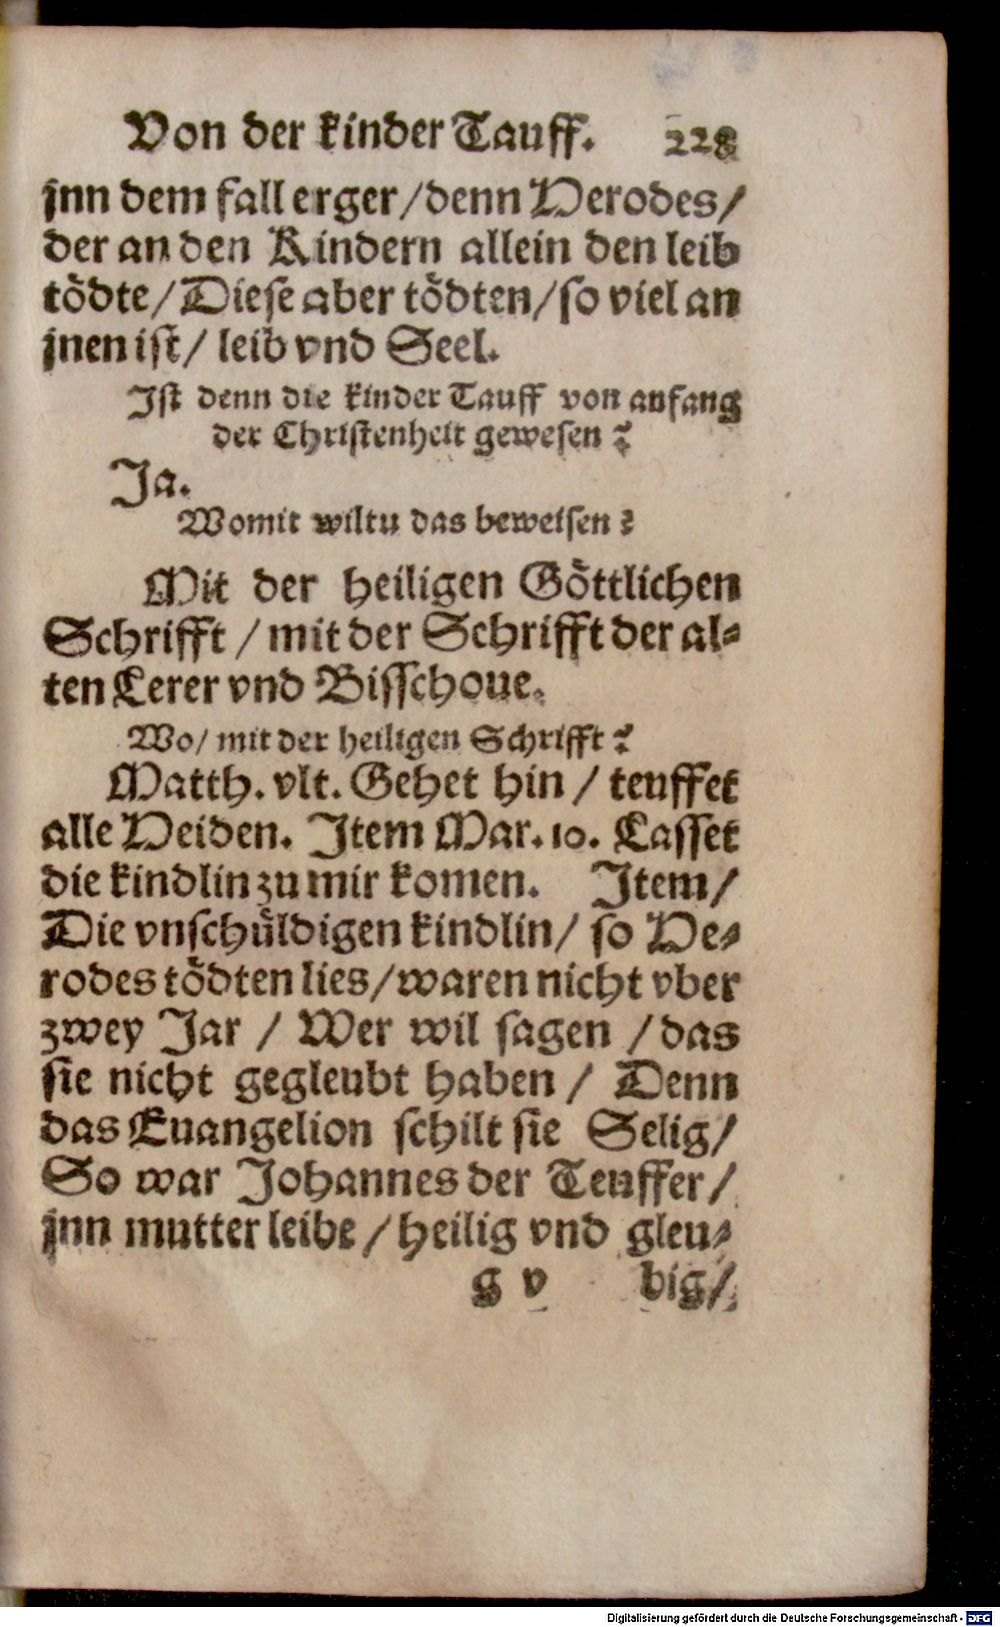 Von der kinder Tauff. 228
jnn dem fall erger / denn Herodes /
der an den Kindern allein den leib
tödte / Diese aber tödten / so viel an
jnen ist / leib vnd Seel.
Ist denn die kinder Tauff von anfang
der Christenheit gewesen?
Ja.
Womit wiltu das beweisen?
Mit der heiligen Göttlichen
Schrifft / mit der Schrifft der al-
ten Lerer vnd Bisschoue.
Wo / mit der heiligen Schrifft?
Matth. vlt. Gehet hin / teuffet
alle Heiden. Item Mar. 10. Lasset
die kindlin zu mir komen. Item /
Die vnschüldigen kindlin / so He-
rodes tödten lies / waren nicht vber
zwey Jar / Wer wil sagen / das
sie nicht gegleubt haben / Denn
das Euangelion schilt sie Selig /
So war Johannes der Teuffer /
jnn mutter leibe / heilig vnd gleu-
g v big /
Digitalisierung gefördert durch die Deutsche Forschungsgemeinschaft - DFG